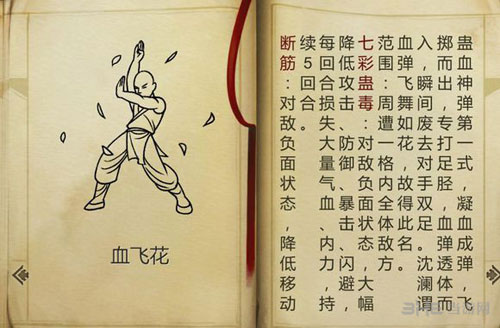 蛊血神弹第一式，凝血成弹，飞
掷而出，专打足胫，血弹透体而
入，瞬间废去对手双足。沉澜谓
血弹飞舞如花，故得此名。
范围：周遭一格内全体敌方。
七彩蛊毒：对敌负面状态，大幅
降低攻击、防御、暴击、闪避，
每回合损失大量气血、内力，持
续5回合。
断筋：对敌负面状态，降低移动
血飞花